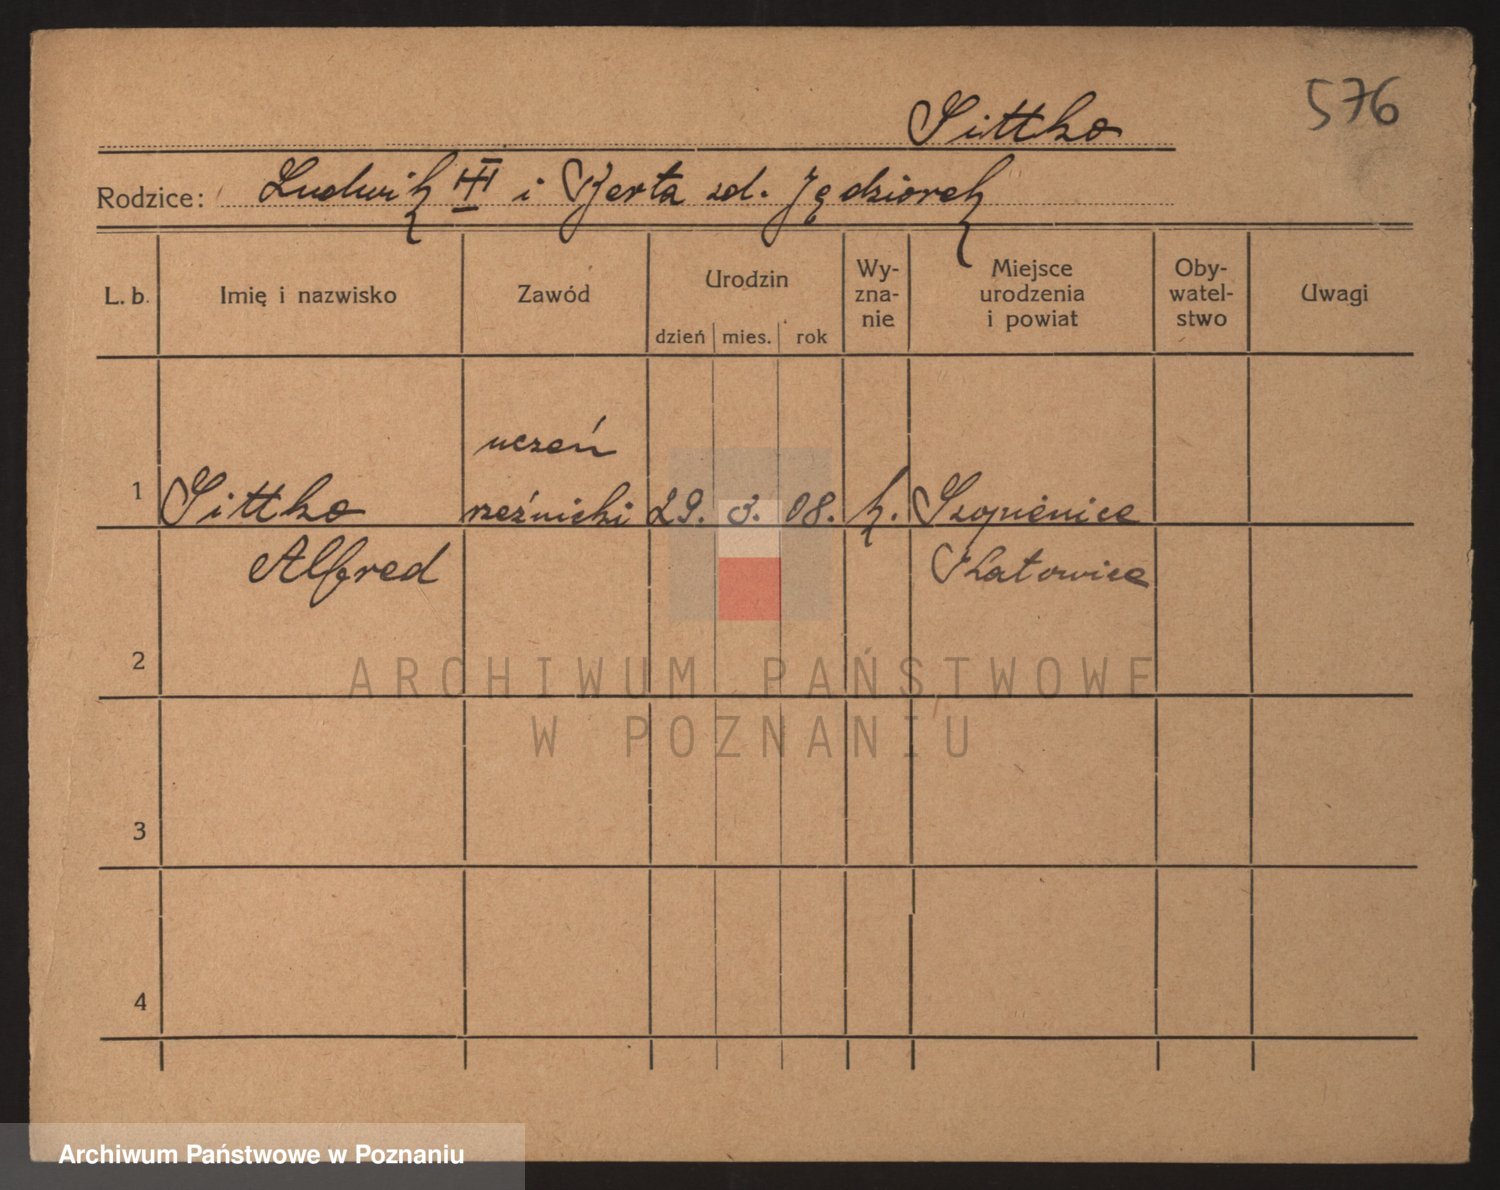 576
Sittko
Rodzice: Ludwik III i Berta zd. Jędziorek
L. b. Imię i nazwisko Zawód Urodzin dzień mies. rok Wy-zna-nie Miejsce urodzenia i powiat Oby-watel-stwo Uwagi
uczeń
1 Sittko rzeźnicki 29. 3. 08. k. Szopienice
Alfred Katowice
2
ARCHIWUM PAŃSTWOWE
W POZNANIU
3
4
Archiwum Państwowe w Poznaniu